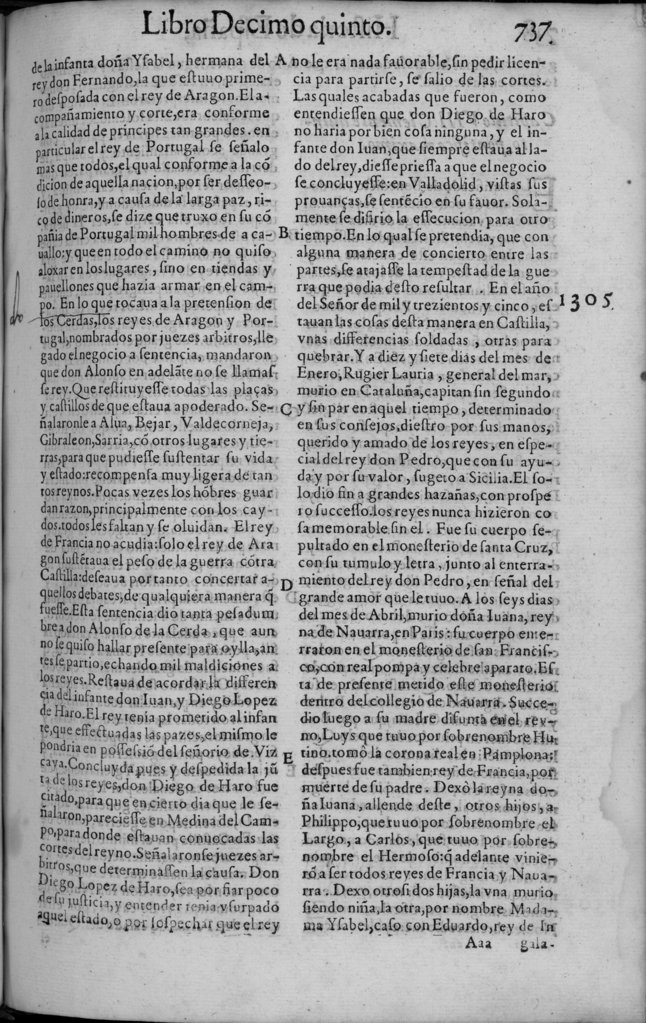 Libro Decimo quinto.
737.
de la infanta doña Ysabel, hermana del
rey don Fernando, la que estuuo prime-
ro desposada con el rey de Aragon. El a-
compañamiento y corte, era conforme
a la calidad de principes tan grandes. en
particular el rey de Portugal se señalo
mas que todos, el qual conforme a la cõ
dicion de aquella nacion, por ser desseo-
so de honra, y a causa de la larga paz, ri-
co de dineros, se dize que truxo en su cõ
pañia de Portugal mil hombres de a ca-
uallo: y que en todo el camino no quiso
aloxar en los lugares, sino en tiendas y
pauellones que hazia armar en el cam-
po. En lo que tocaua a la pretension de
los Cerdas, los reyes de Aragon y Por-
tugal, nombrados por juezes arbitros, lle
gado el negocio a sentencia, mandaron
que don Alonso en adelãte no se llamas
se rey. Que restituyesse todas las plaças
y castillos de que estaua apoderado. Se-
ñalaronle a Alua, Bejar, Valdecorneja,
Gibraleon, Sarria, cõ otros lugares y tie-
rras, para que pudiesse sustentar su vida
y estado: recompensa muy ligera de tan
tos reynos. Pocas vezes los hõbres guar
dan razon, principalmente con los cay-
dos. todos les faltan y se oluidan. El rey
de Francia no acudia: solo el rey de Ara
gon sustẽtaua el peso de la guerra cõtra
Castilla: deseaua por tanto concertar a-
quellos debates, de qualquiera manera q̃
fuesse. Esta sentencia dio tanta pesadum
bre a don Alonso de la Cerda, que aun
no se quiso hallar presente para oylla, an
tes se partio, echando mil maldiciones a
los reyes. Restaua de acordar la differen
cia del infante don Iuan, y Diego Lopez
de Haro. El rey tenia prometido al infan
te, que effectuadas las pazes, el mismo le
pondria en possessiõ del señorio de Viz
caya. Concluyda pues y despedida la jũ
ta de los reyes, don Diego de Haro fue
citado, para que en cierto dia que le se-
ñalaron, pareciesse en Medina del Cam-
po, para donde estauan conuocadas las
cortes del reyno. Señalaronse juezes ar-
bitros, que determinassen la causa. Don
Diego Lopez de Haro, sea por fiar poco
de su justicia, y entender tenia vsurpado
aquel estado, o por sospechar que el rey
A
B
C
D
E
no le era nada fauorable, sin pedir licen-
cia para partirse, se salio de las cortes.
Las quales acabadas que fueron, como
entendiessen que don Diego de Haro
no haria por bien cosa ninguna, y el in-
fante don Iuan, que siempre estaua al la-
do del rey, diesse priessa a que el negocio
se concluyesse: en Valladolid, vistas sus
prouanças, se sentẽcio en su fauor. Sola-
mente se difirio la essecucion para otro
tiempo. En lo qual se pretendia, que con
alguna manera de concierto entre las
partes, se atajasse la tempestad de la gue
rra que podia desto resultar. En el año
del Señor de mil y trezientos y cinco, es
tauan las cosas desta manera en Castilla,
vnas differencias soldadas, otras para
quebrar. Y a diez y siete dias del mes de
Enero, Rugier Lauria, general del mar,
murio en Cataluña, capitan sin segundo
y sin par en aquel tiempo, determinado
en sus consejos, diestro por sus manos,
querido y amado de los reyes, en espe-
cial del rey don Pedro, que con su ayu-
da y por su valor, sugeto a Sicilia. El so-
lo dio fin a grandes hazañas, con prospe
ro successo. los reyes nunca hizieron co
sa memorable sin el. Fue su cuerpo se-
pultado en el monesterio de santa Cruz,
con su tumulo y letra, junto al enterra-
miento del rey don Pedro, en señal del
grande amor que le tuuo. A los seys dias
del mes de Abril, murio doña Iuana, rey
na de Nauarra, en Paris: su cuerpo ente-
rraron en el monesterio de san Francis-
co, con real pompa y celebre aparato. Es
ta de presente metido este monesterio
dentro del collegio de Nauarra. Succe-
dio luego a su madre difunta en el rey-
no, Luys que tuuo por sobrenombre Hu
tino. tomò la corona real en Pamplona:
despues fue tambien rey de Francia, por
muerte de su padre. Dexò la reyna do-
ña Iuana, allende deste, otros hijos, a
Philippo, que tuuo por sobrenombre el
Largo, a Carlos, que tuuo por sobre-
nombre el Hermoso: q̃ adelante vinie-
rõ a ser todos reyes de Francia y Naua-
rra. Dexo otrosi dos hijas, la vna murio
siendo niña, la otra, por nombre Mada-
ma Ysabel, caso con Eduardo, rey de In
1305.
Aaa gala-